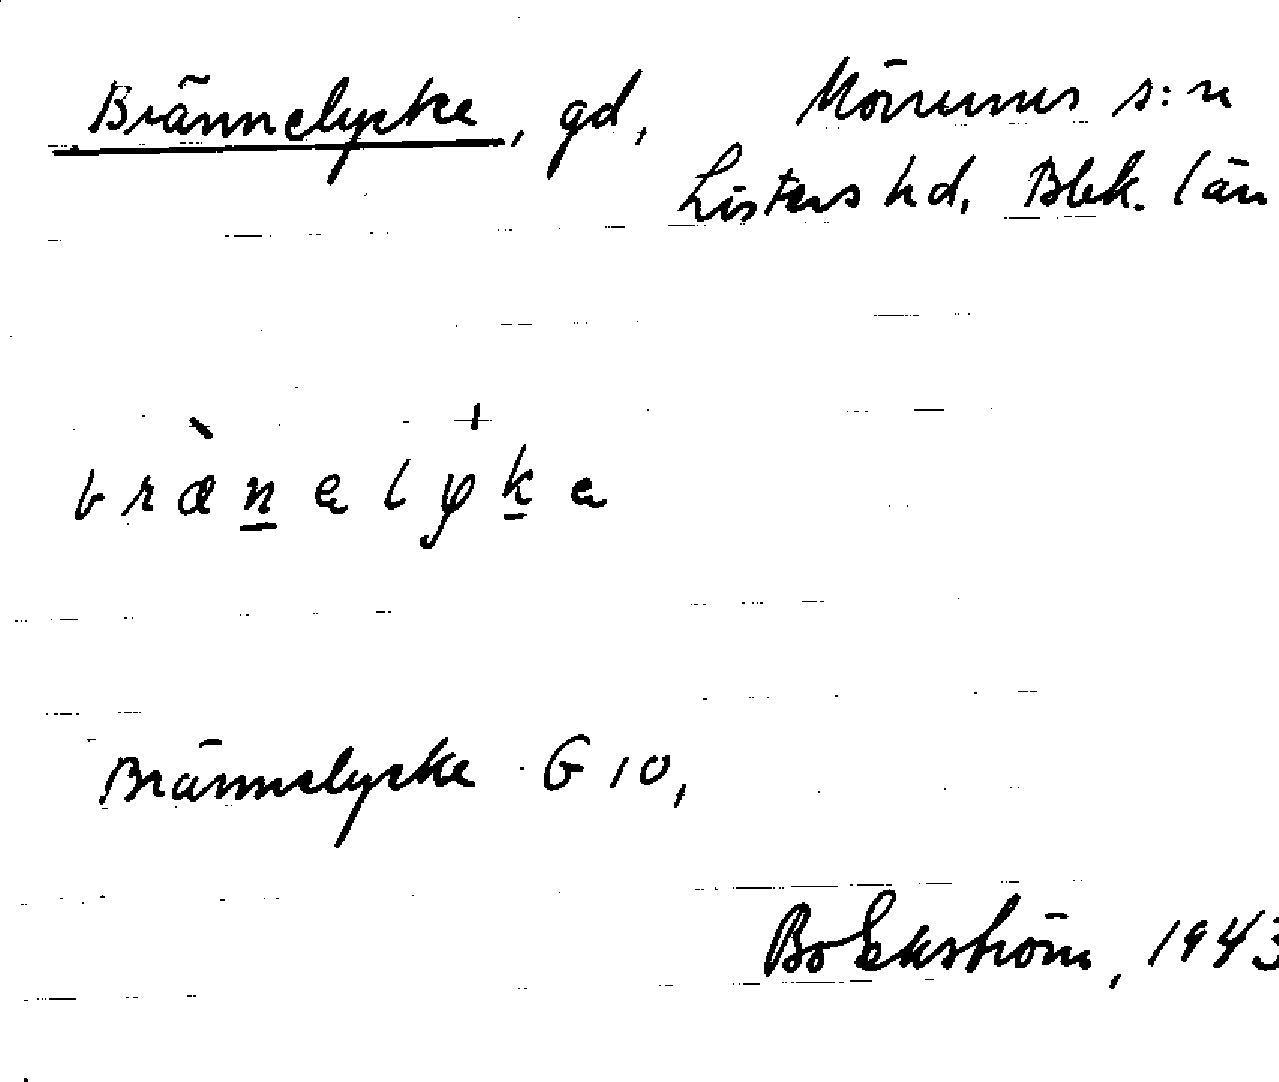 Brännelycke, gd, Mörrums s:n
Listers hd, Blek. län
bræ̀nalyka
Brännelycke G 10,
Bo Ekström, 1943